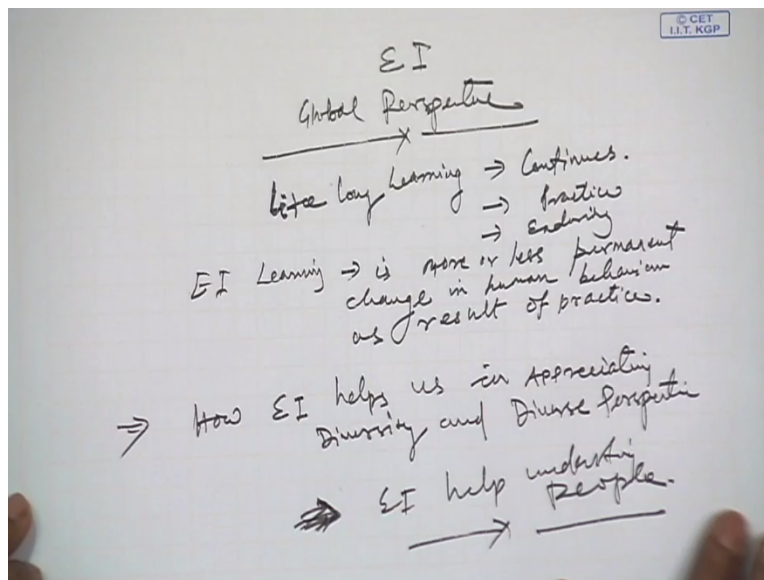 © CET
I.I.T. KGP
EI
Global Perspective
Life long Learning → Continues.
→ Practice
→ Enduring
EI Learning → is more or less permanent
change in human behaviour
as result of practice.
⇒ How EI helps us in Appreciating
Diversity and Diverse Perspective
⇒ EI help understing
People.